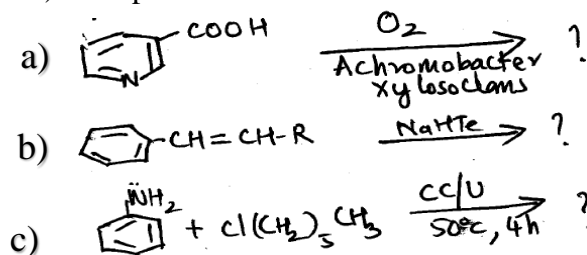 a) N COOH O2 Achromobacter xylosoclans ?
b) CH=CH-R NaHTe ?
c) NH2 + Cl(CH2)5CH3 CC/U 50°C, 4h ?